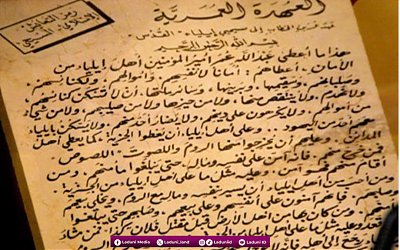 العهدة العمرية
رمز التعايش
الإسلامي المسيحي
عمر بن الخطاب إلى مسيحيي إيلياء "القدس"
بسم الله الرحمن الرحيم
هذا ما أعطى عبد الله عمر أمير المؤمنين أهل إيلياء من
الأمان.. أعطاهم: أمانا لأنفسهم، وأموالهم، ولكنائسهم.
وصلبانهم، وسقيمها، وبريئها، وسائر ملتها: أن لا تسكن كنائسهم
ولا تهدم، ولا ينتقص منها، ولا من حيزها، ولا من صليبهم، ولا من شيء
من أموالهم، ولا يكرهون على دينهم، ولا يضار أحد منهم، ولا يسكن بإيلياء
أحد من اليهود.. وعلى أهل إيلياء، أن يعطوا الجزية، كما يعطي أهل
المدائن. وعليهم أن يخرجوا منها الروم واللصوت: اللصوص
فمن خرج منهم، فإنه آمن على نفسه وماله، حتى يبلغوا مأمنهم، ومن
أقام منهم فهو آمن، وعليه مثل ما على أهل إيلياء، من الجزية
ومن أحب من أهل إيلياء أن يسير بنفسه، وماله مع الروم، ويخلي بيعهم
وصلبهم، فإنهم آمنون على أنفسهم وعلى بيعهم وصلبهم حتى يبلغوا مأمنهم
ومن كان بها من أهل الأرض قبل مقتل فلان فمن شاء
Laduni Media Laduni_land Laduniid Laduni ID